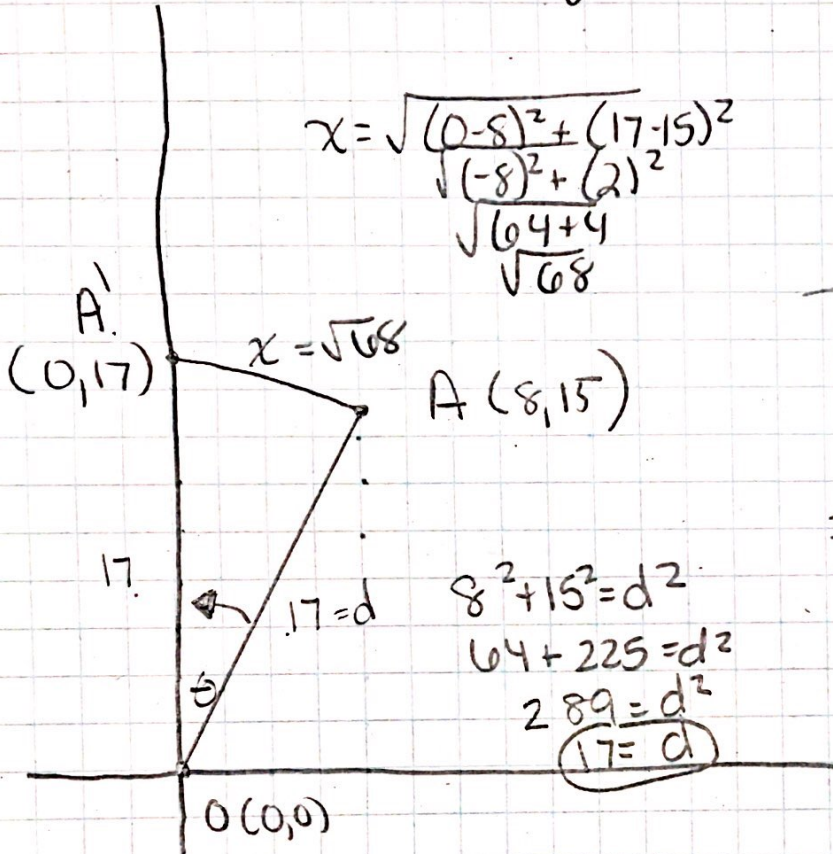 x = √(0-8)² + (17-15)²
√(-8)² + (2)²
√64+4
√68
A'
(0,17)
x = √68
A (8,15)
17
17=d
θ
8²+15²=d²
64+225=d²
289=d²
17=d
O(0,0)